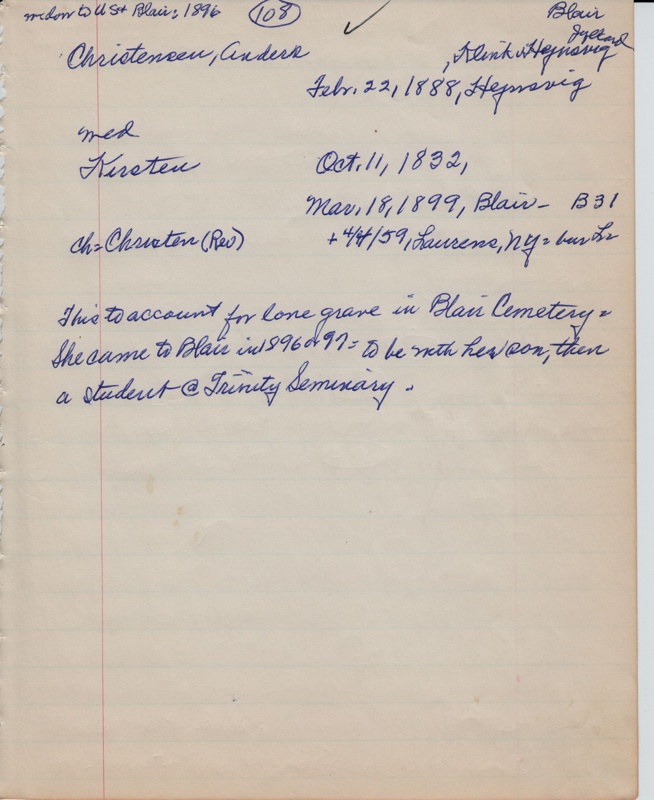 widow to US + Blair = 1896 (108) Blair
Jylland
Christensen, Anders , Klink v Hejnsvig
Febr. 22, 1888, Hejnsvig
med
Kirsten Oct. 11, 1832,
Mar. 18, 1899, Blair - B31
ch = Christen (Rev) + 4/4/59, Laurens, NY = bur
This to account for lone grave in Blair Cemetery =
She came to Blair in 1896 or 97 = to be with her son, then
a student @ Trinity Seminary.